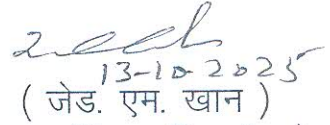 13-10-2025
( जेड. एम. खान )